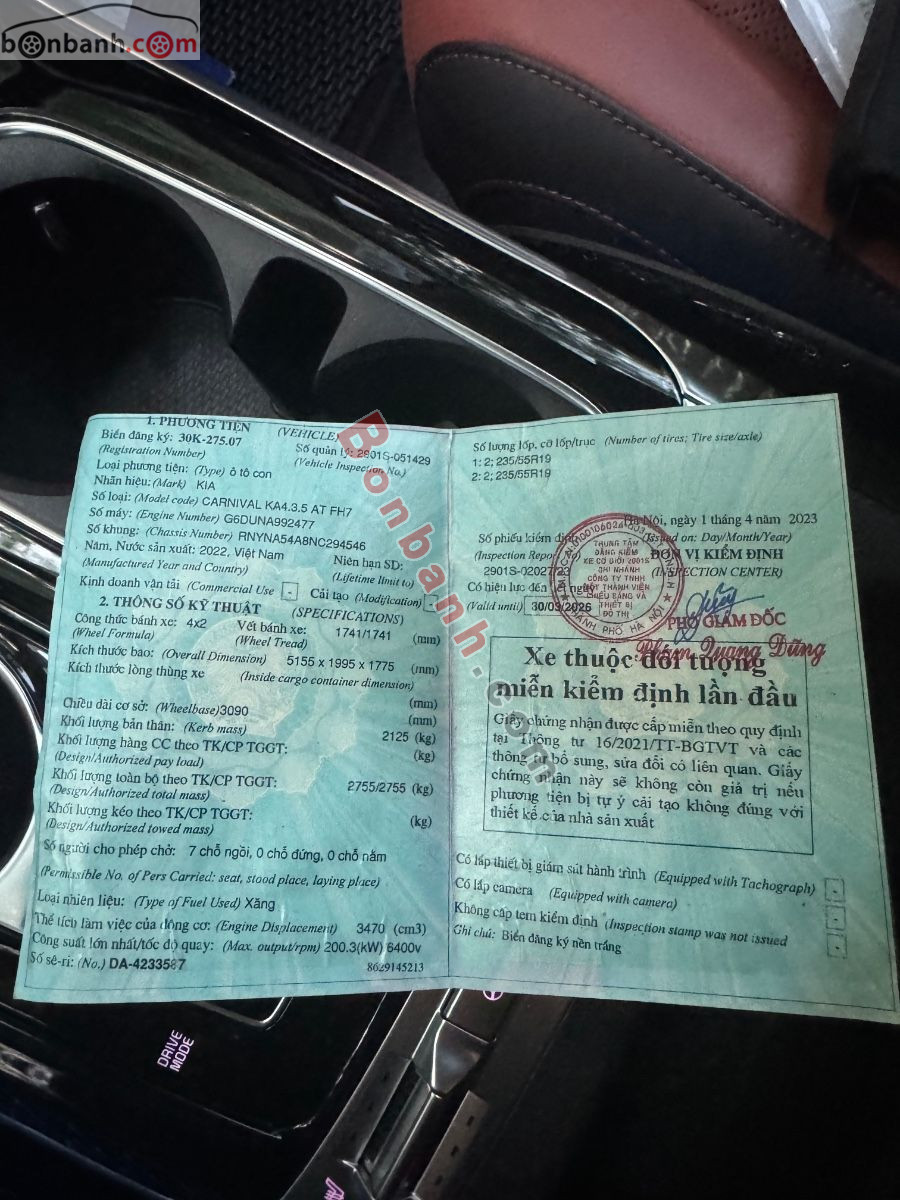 bonbanh.com
1. PHƯƠNG TIỆN (VEHICLE)
Biển đăng ký: 30K-275.07 Số quản lý: 2901S-051429
(Registration Number) (Vehicle Inspection No.)
Loại phương tiện: (Type) ô tô con
Nhãn hiệu: (Mark) KIA
Số loại: (Model code) CARNIVAL KA4.3.5 AT FH7
Số máy: (Engine Number) G6DUNA992477
Số khung: (Chassis Number) RNYNA54A8NC294546
Năm, Nước sản xuất: 2022, Việt Nam Niên hạn SD:
(Manufactured Year and Country) (Lifetime limit to)
Kinh doanh vận tải (Commercial Use - Cải tạo (Modification) -
2. THÔNG SỐ KỸ THUẬT (SPECIFICATIONS)
Công thức bánh xe: 4x2 Vết bánh xe: 1741/1741 (mm)
(Wheel Formula) (Wheel Tread)
Kích thước bao: (Overall Dimension) 5155 x 1995 x 1775 (mm)
Kích thước lòng thùng xe (Inside cargo container dimension)
(mm)
Chiều dài cơ sở: (Wheelbase)3090 (mm)
Khối lượng bản thân: (Kerb mass) 2125 (kg)
Khối lượng hàng CC theo TK/CP TGGT: (kg)
(Design/Authorized pay load)
Khối lượng toàn bộ theo TK/CP TGGT: 2755/2755 (kg)
(Design/Authorized total mass)
Khối lượng kéo theo TK/CP TGGT: (kg)
(Design/Authorized towed mass)
Số người cho phép chở: 7 chỗ ngồi, 0 chỗ đứng, 0 chỗ nằm
(Permissible No. of Pers Carried: seat, stood place, laying place)
Loại nhiên liệu: (Type of Fuel Used) Xăng
Thể tích làm việc của động cơ: (Engine Displacement) 3470 (cm3)
Công suất lớn nhất/tốc độ quay: (Max. output/rpm) 200.3(kW) 6400v
Số sê-ri: (No.) DA-4233587 8629145213
Số lượng lốp, cỡ lốp/trục (Number of tires; Tire size/axle)
1: 2; 235/55R19
2: 2; 235/55R19
Hà Nội, ngày 1 tháng 4 năm 2023
Số phiếu kiểm định (Issued on: Day/Month/Year)
(Inspection Report ĐƠN VỊ KIỂM ĐỊNH
(INSPECTION CENTER)
Có hiệu lực đến
(Valid until) 30/03/2026
TRUNG TÂM
ĐĂNG KIỂM
XE CƠ GIỚI 2901S
CHI NHÁNH
CÔNG TY TNHH
MỘT THÀNH VIÊN
THIẾT BỊ
ĐÔ THỊ
THÀNH PHỐ HÀ NỘI
PHÓ GIÁM ĐỐC
Phạm Quang Dũng
Xe thuộc đối tượng
miễn kiểm định lần đầu
Giấy chứng nhận được cấp miễn theo quy định
tại Thông tư 16/2021/TT-BGTVT và các
thông tư bổ sung, sửa đổi có liên quan. Giấy
chứng nhận này sẽ không còn giá trị nếu
phương tiện bị tự ý cải tạo không đúng với
thiết kế của nhà sản xuất
Có lắp thiết bị giám sát hành trình (Equipped with Tachograph)
Có lắp camera (Equipped with camera)
Không cấp tem kiểm định (Inspection stamp was not issued
Ghi chú: Biển đăng ký nền trắng
Bonbanh.com
DRIVE
MODE